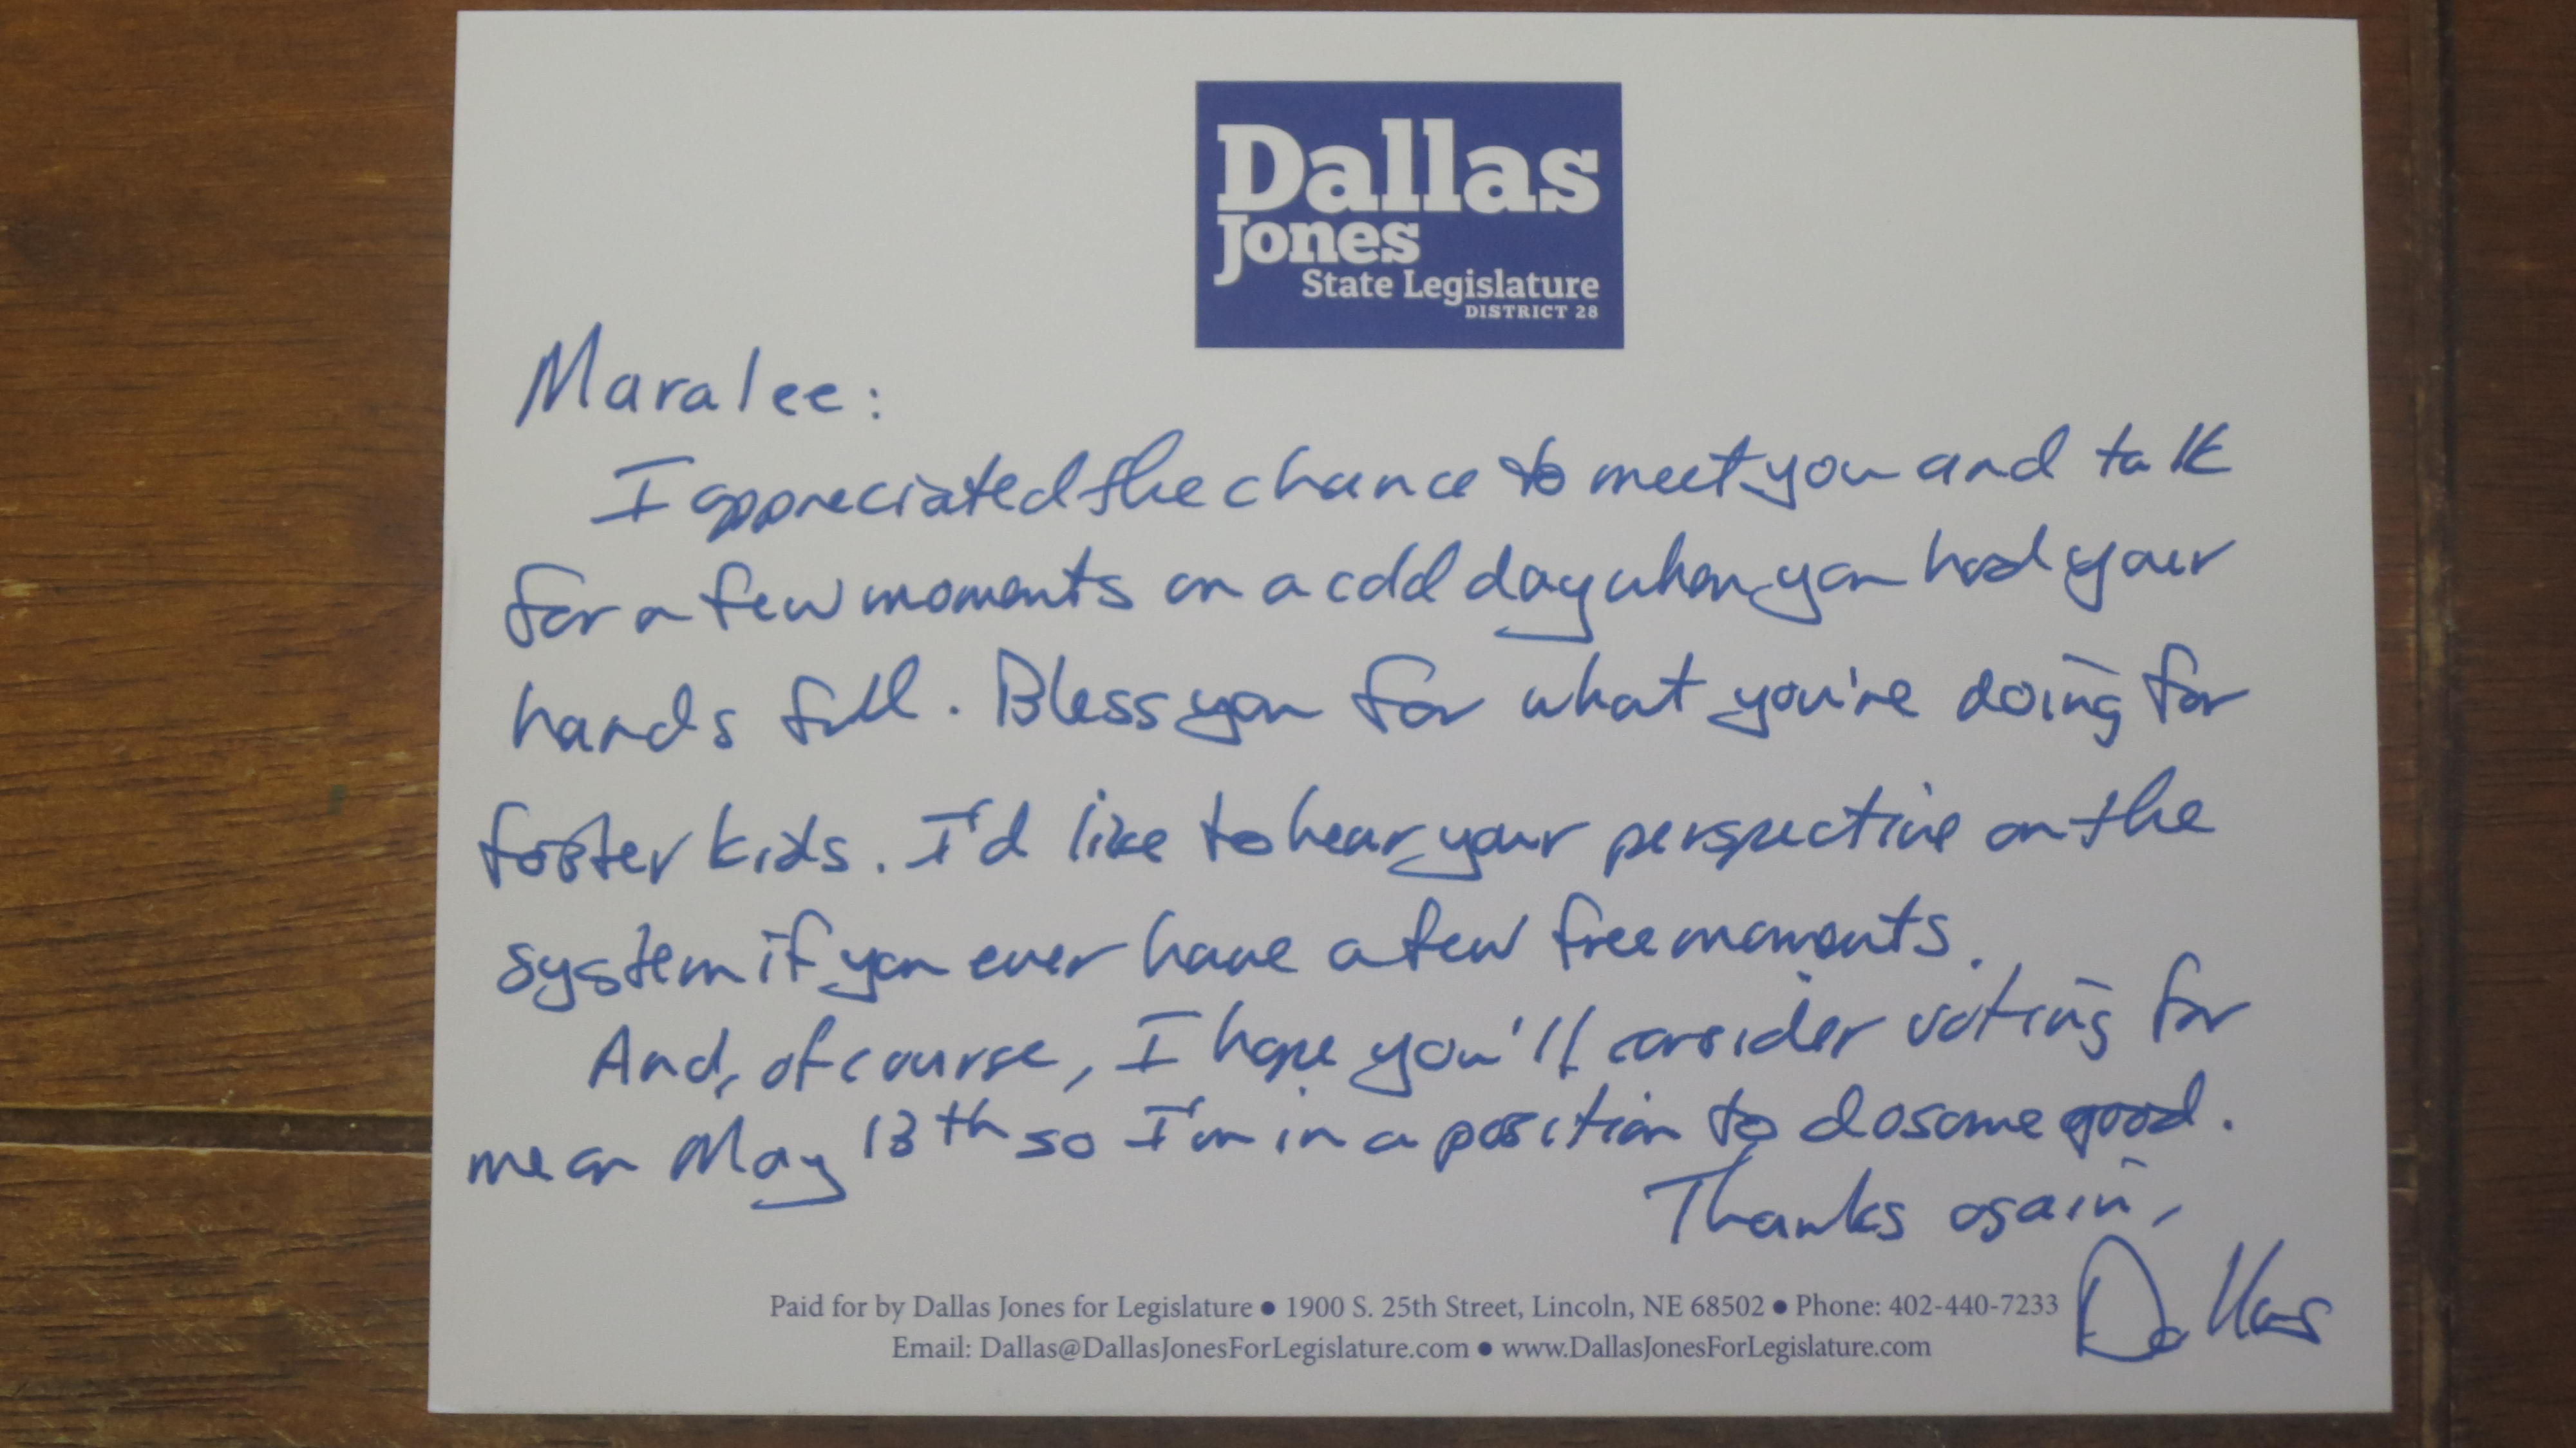 Dallas
Jones
State Legislature
DISTRICT 28
Maralee:
I appreciated the chance to meet you and talk
for a few moments on a cold day when you had your
hands full. Bless you for what you're doing for
foster kids. I'd like to hear your perspective on the
system if you ever have a few free moments.
And, of course, I hope you'll consider voting for
me on May 13th so I'm in a position to do some good.
Thanks again,
Dallas
Paid for by Dallas Jones for Legislature ● 1900 S. 25th Street, Lincoln, NE 68502 ● Phone: 402-440-7233
Email: Dallas@DallasJonesForLegislature.com ● www.DallasJonesForLegislature.com